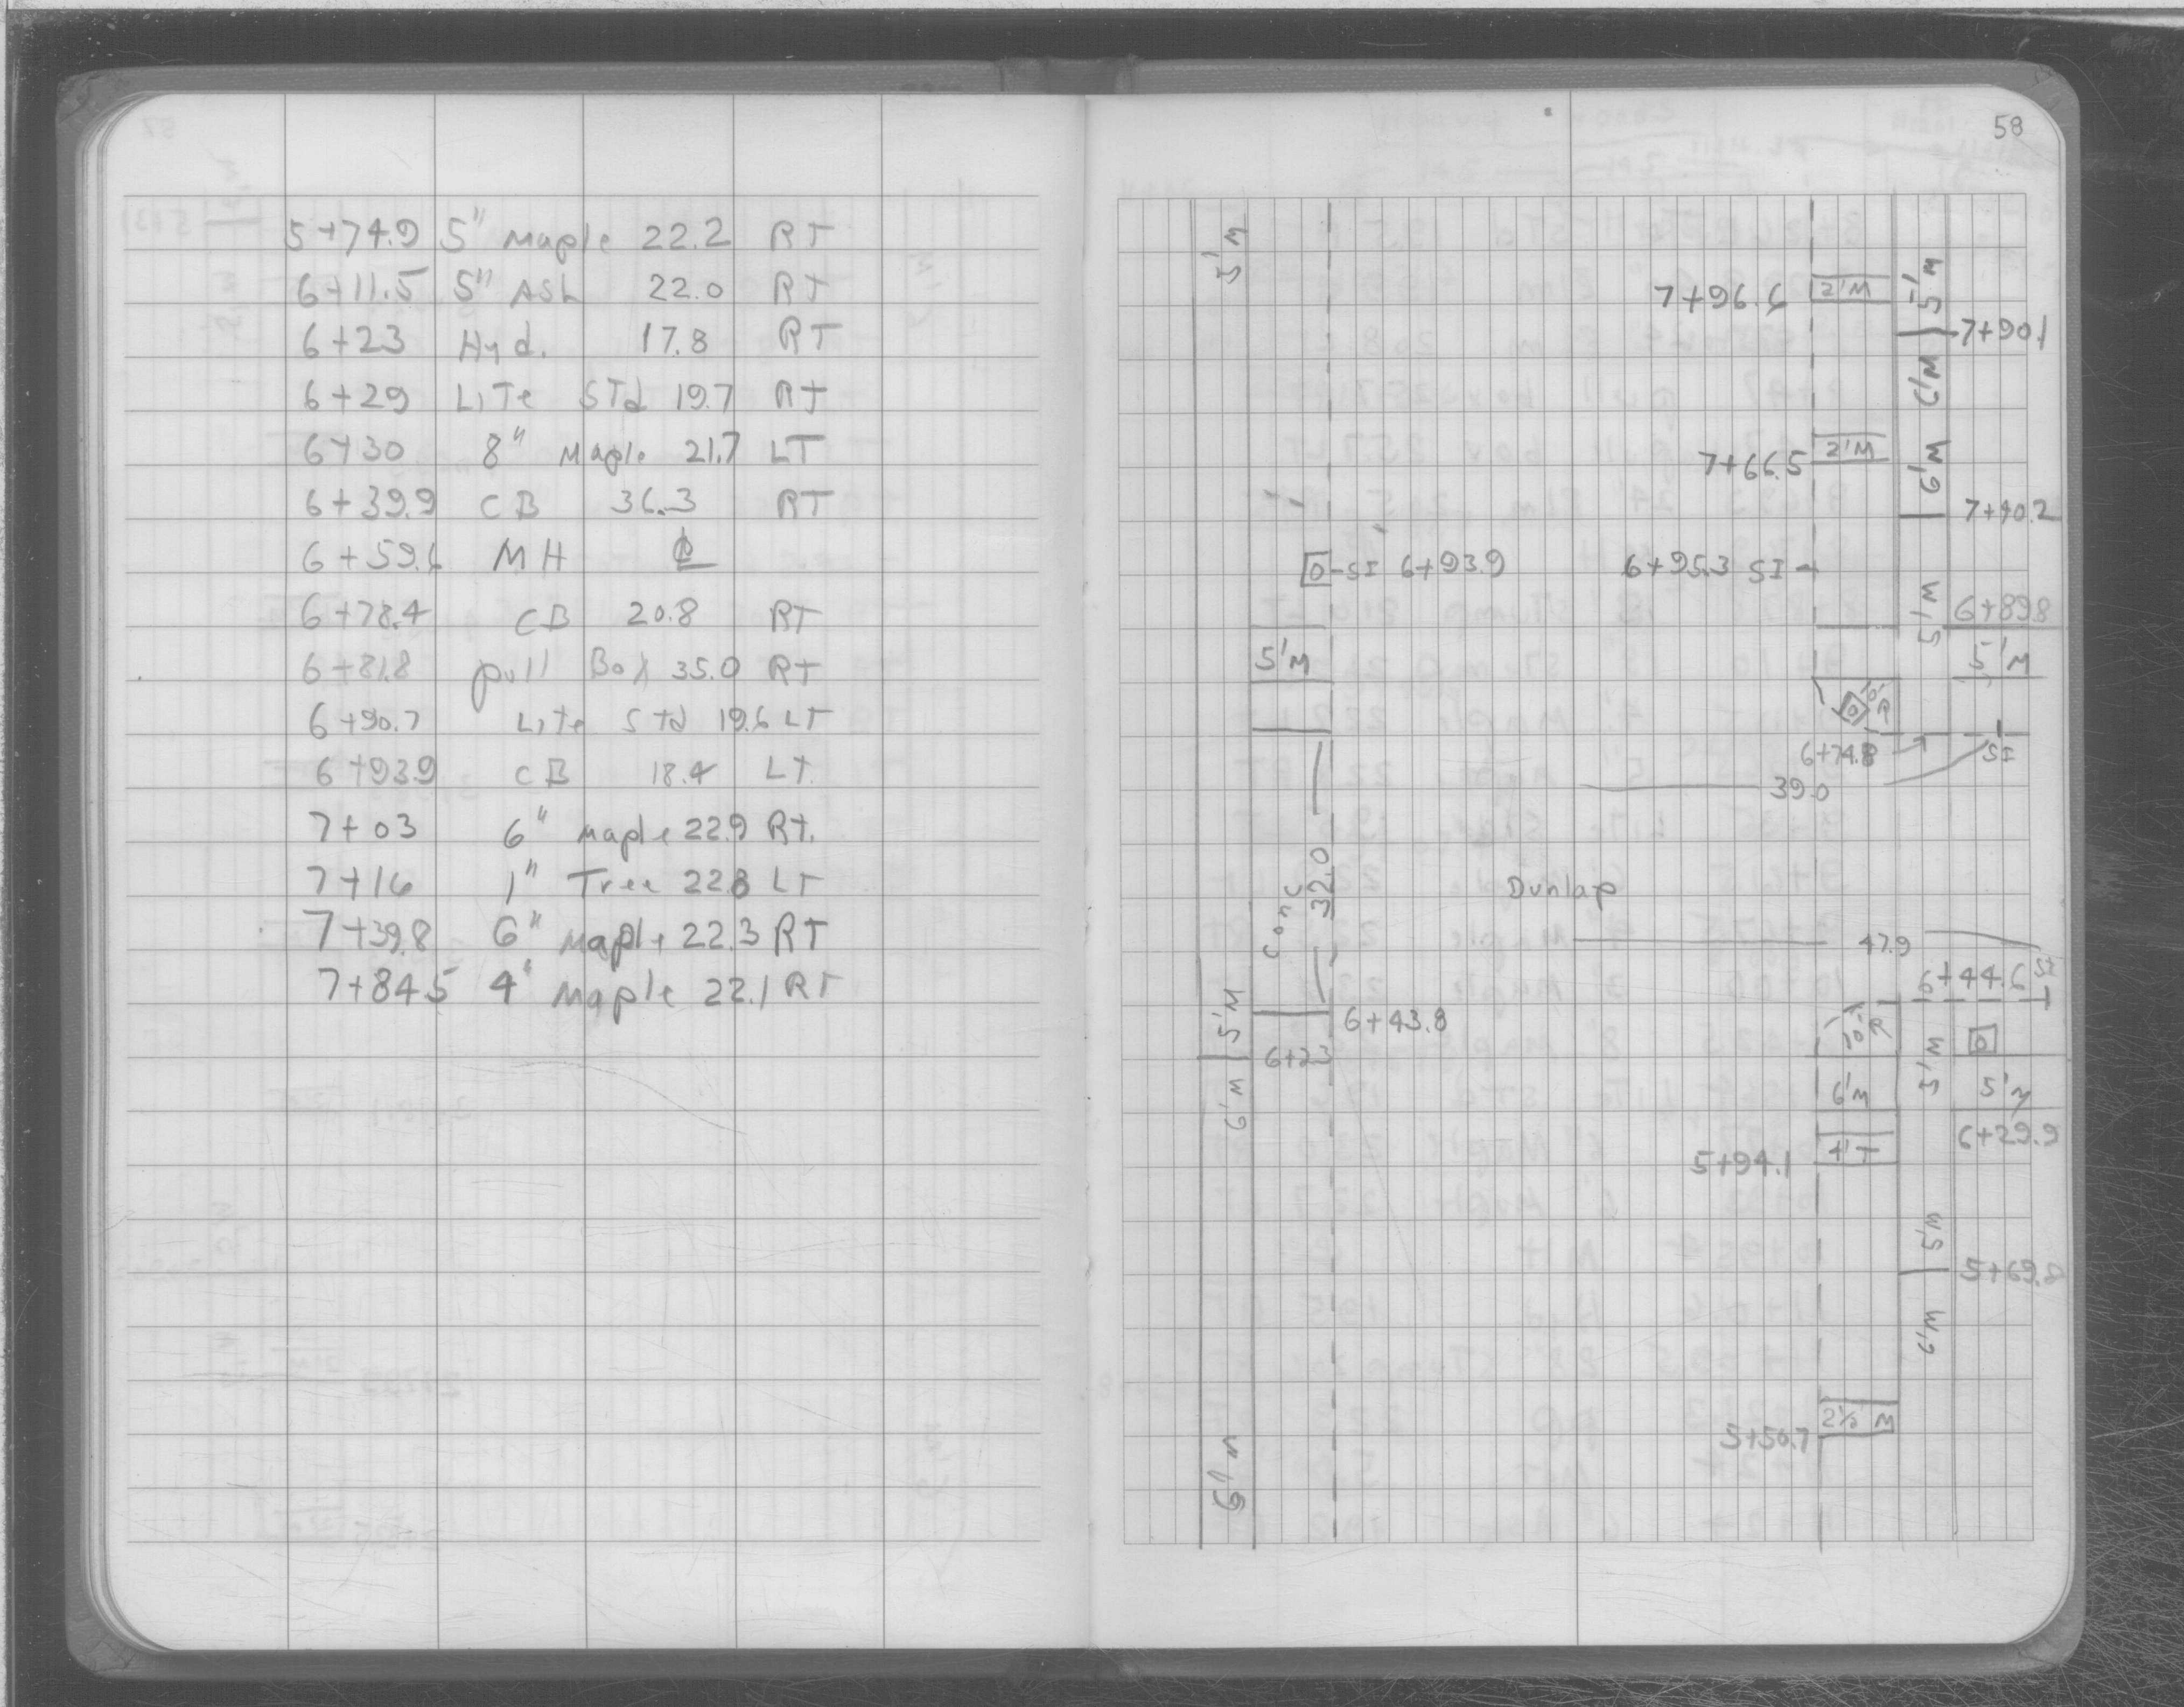 5+74.9 5" Maple 22.2 RT
6+11.5 5" ASh 22.0 RT
6+23 Hyd. 17.8 RT
6+29 LiTe STd 19.7 RT
6+30 8" Maple 21.7 LT
6+39.9 CB 36.3 RT
6+59.6 MH ℄
6+78.4 CB 20.8 RT
6+81.8 pull Box 35.0 RT
6+90.7 Lite Std 19.6 LT
6+93.9 CB 18.4 LT.
7+03 6" maple 22.9 RT.
7+16 1" Tree 22.8 LT
7+39.8 6" Maple 22.3 RT
7+84.5 4" Maple 22.1 RT
58
5'M
5'M
7+96.6 2'M
7+90.1
6'M
7+66.5 2'M
6'M
7+40.2
SI 6+93.9 6+95.3 SI
5'M
6+89.8
5'M 5'M
10'R
6+74.8 SI
39.0
32.0
Conc
Dunlap
47.9
6+44.6 SI
5'M
6+43.8
10'R
5'M
6+23
6'M
6'M 5'M
6+29.9
5+94.1
5'M
5+69.8
6'M
2½ M
5+50.7
6'M